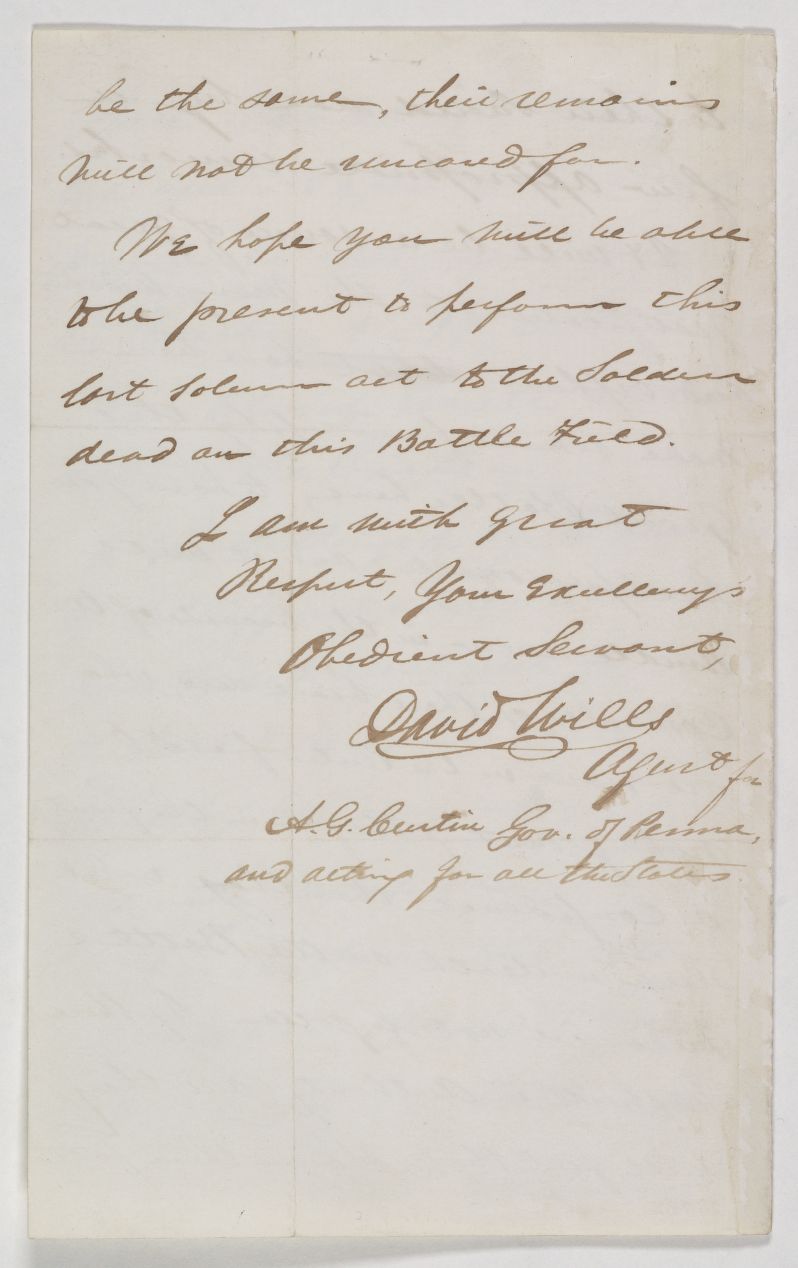 be the same, their remains
will not be uncared for.
We hope you will be able
to be present to perform this
last solemn act to the Soldiers
dead on this Battle Field.
I am with great
Respect, Your Excellency's
Obedient Servant,
David Wills
Agent for
A. G. Curtin Gov. of Penna.
and acting for all the States.